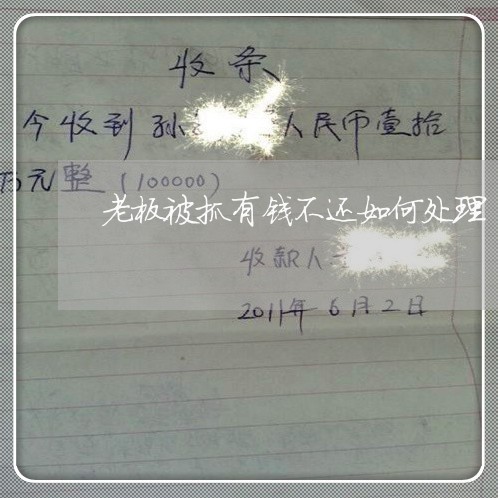 收条
今收到孙 人民币壹拾
万元整（100000）
老板被抓有钱不还如何处理
收款人
2011年6月2日